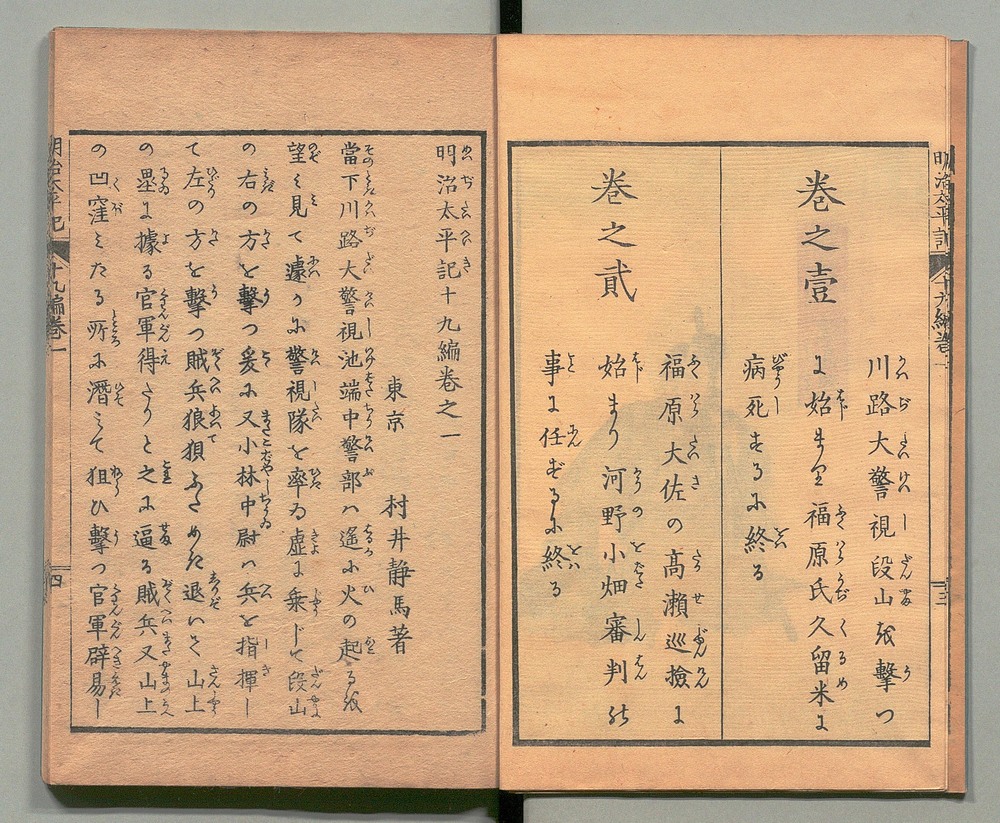 巻之壹
川路大警視段山を撃つ
に始まり福原氏久留米に
病死するに終る
巻之貳
福原大佐の髙瀬巡撿に
始まり河野小畑審判の
事に任ずるに終る
明治太平記十九編巻之一
東京 村井静馬著
當下川路大警視池端中警部ハ遙に火の起るを
望み見て遽かに警視隊を率ゐ虚に乗じて段山
の右の方を撃つ爰に又小林中尉ハ兵を指揮し
て左の方を撃つ賊兵狼狽ふためき退いて山上
の塁に據る官軍得たりと之に逼る賊兵又山上
の凹窪みたる所に潜みて狙ひ撃つ官軍辟易し
明治太平記
十九編巻一
四
明治太平記
十九編巻一